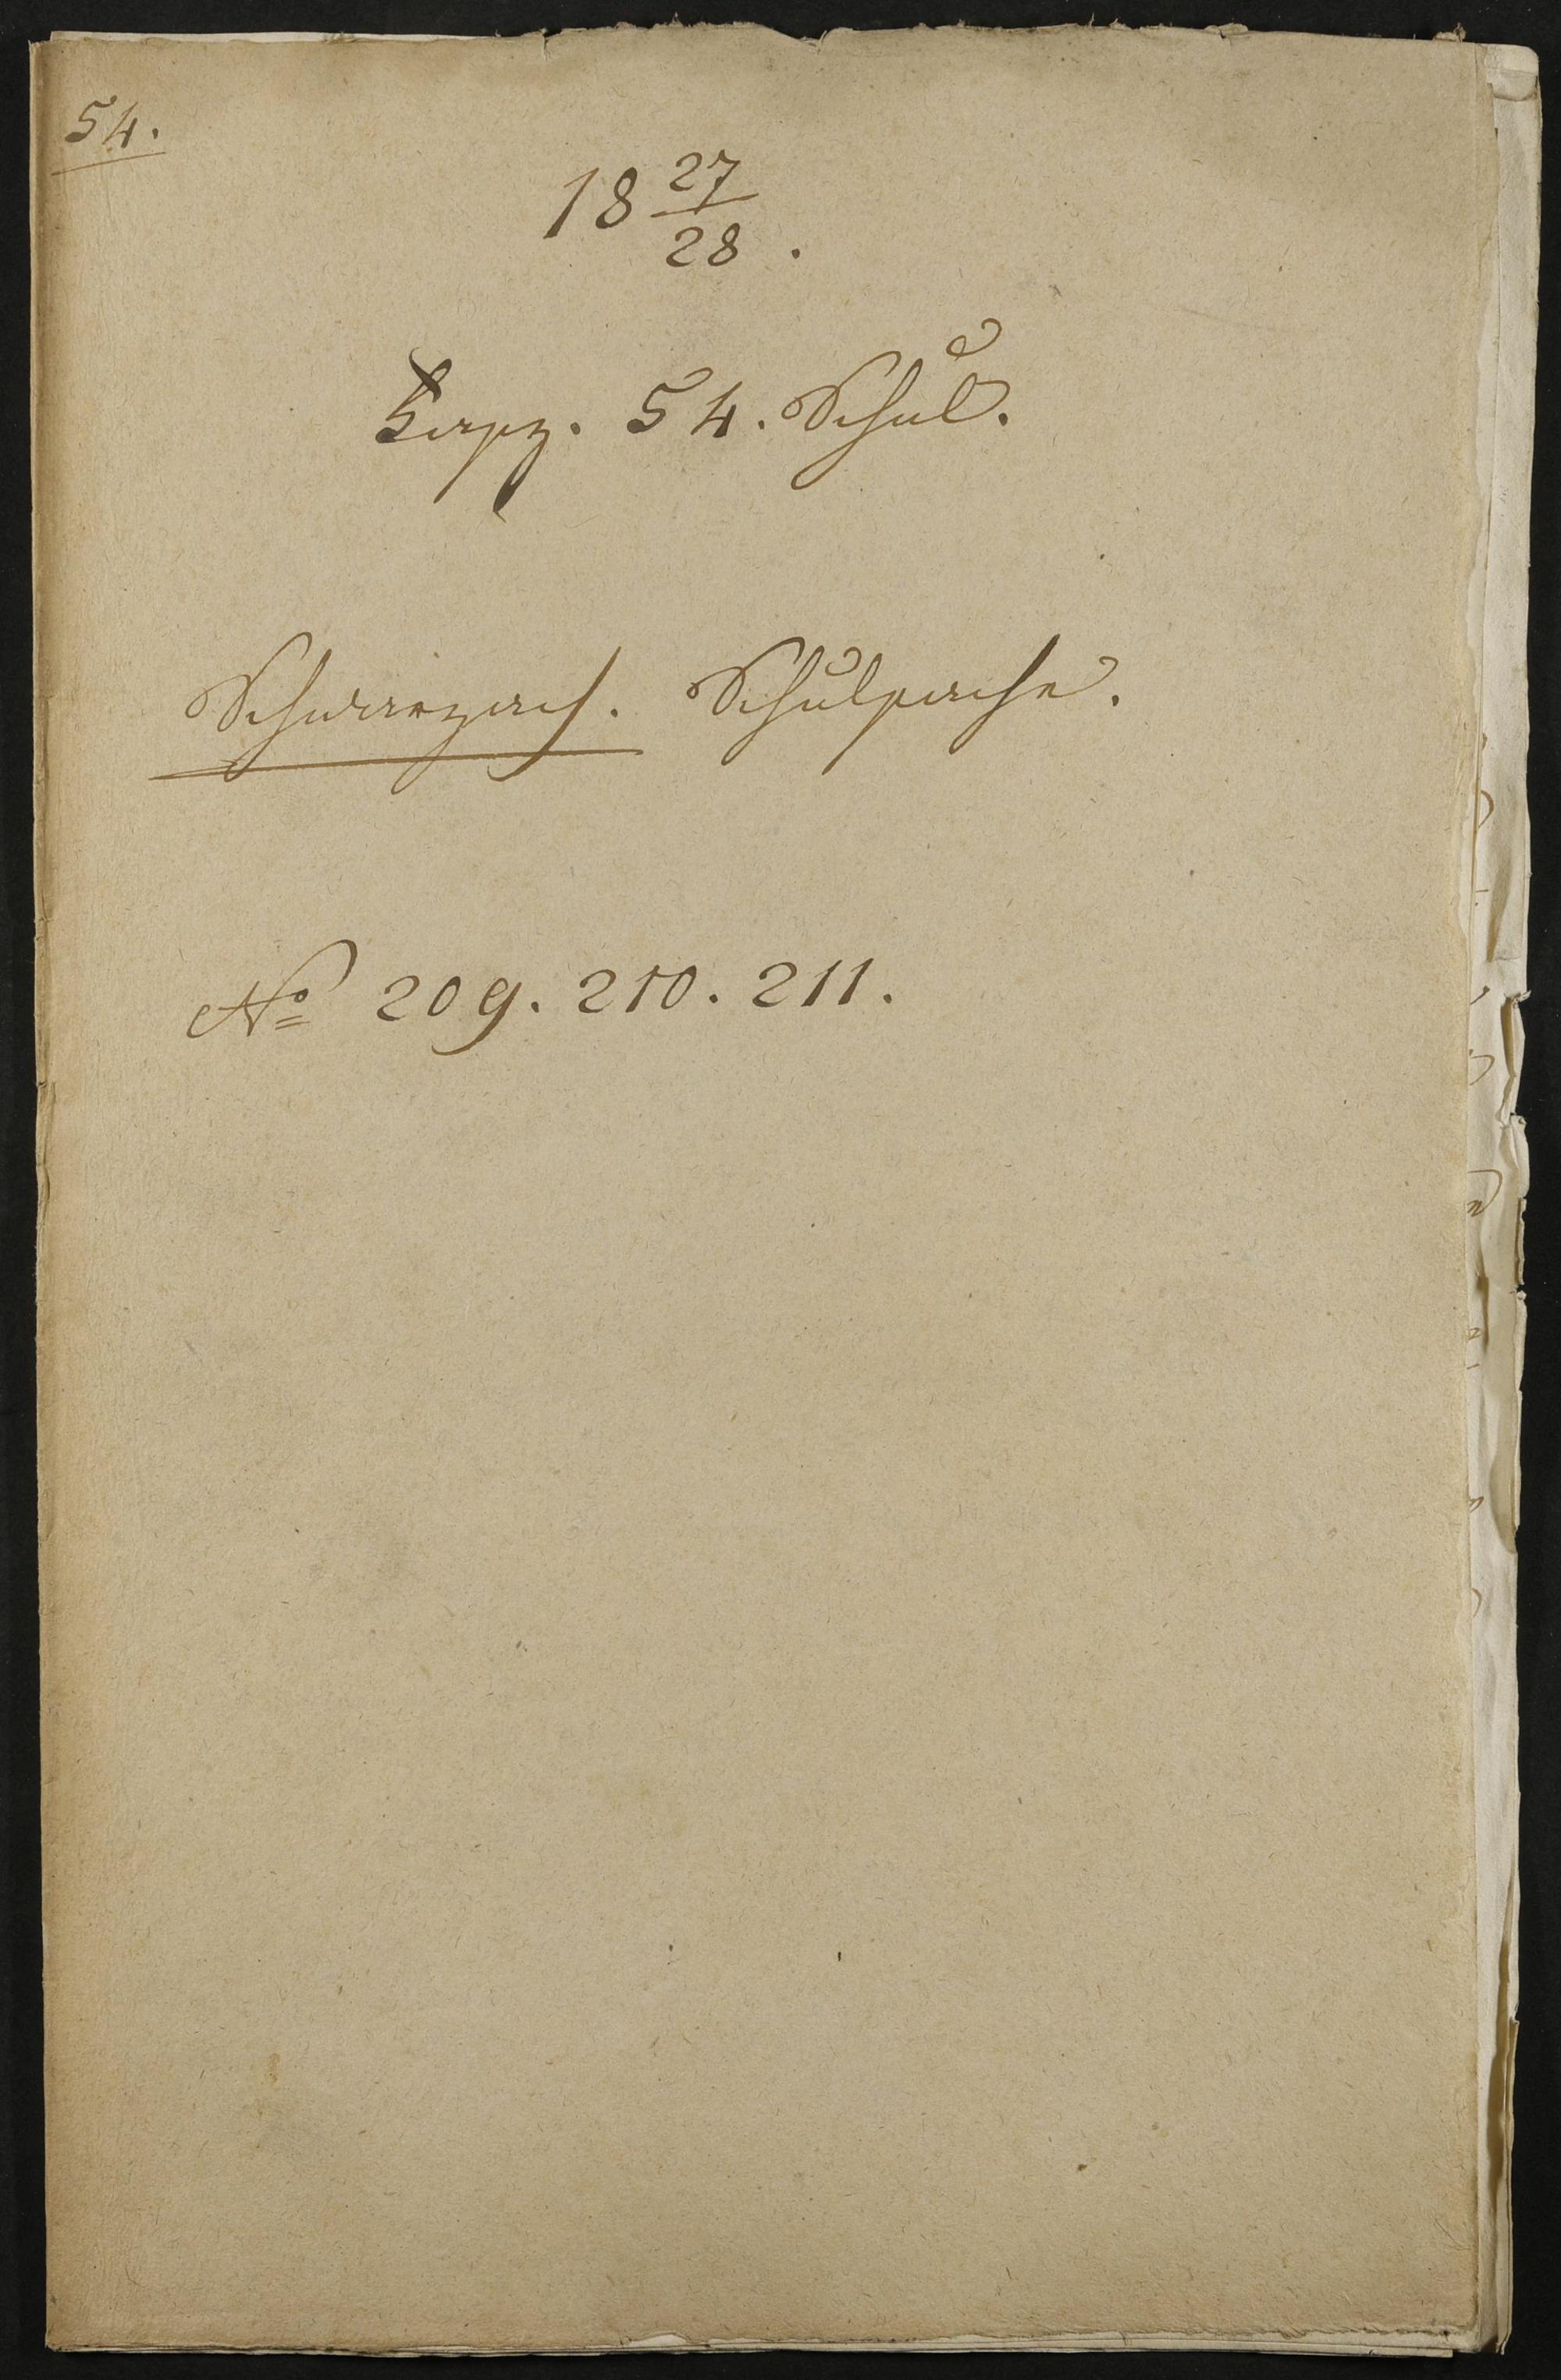 54.
18 27/28.
Fasz. 54. Schul.
Schwarzach. Schulsache.
No 209. 210. 211.